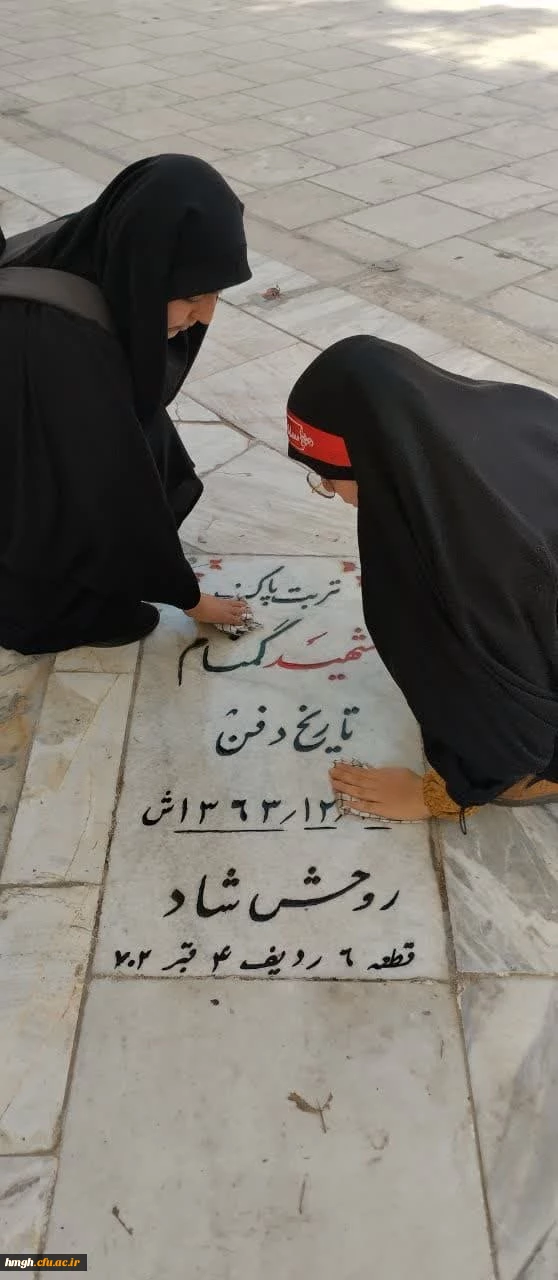 تربت پاک
شهید گمنام
تاریخ دفن
۱۲/۱۳۶۳ش
روحش شاد
قطعه ۶ ردیف ۴ قبر ۷۰۲
hmgh.cfu.ac.ir